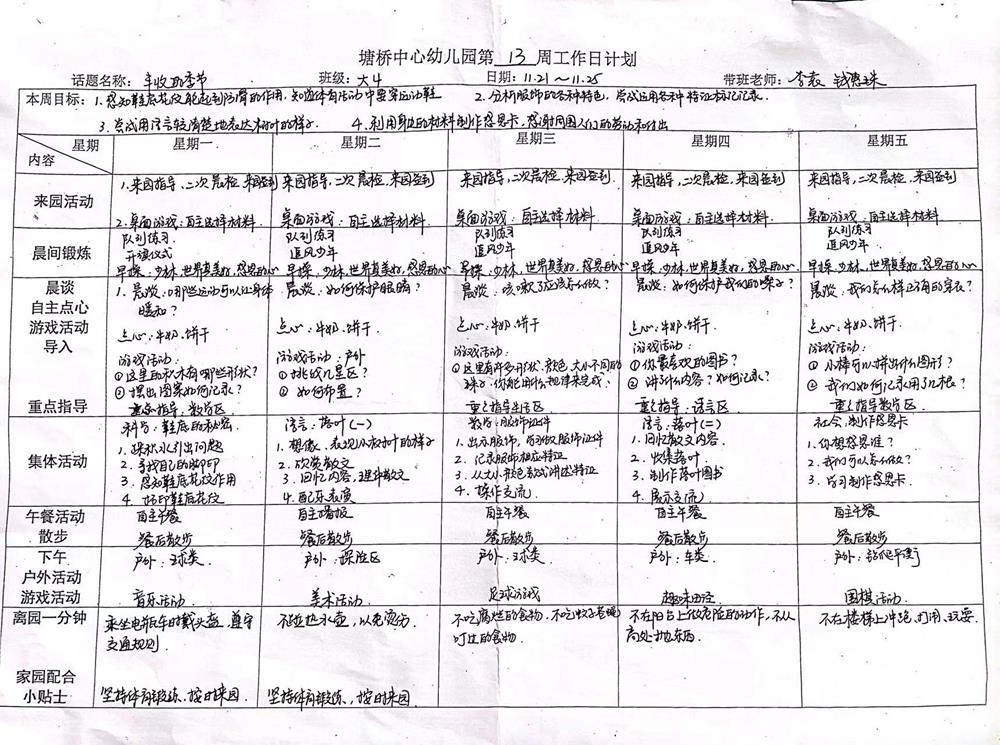 塘桥中心幼儿园第 13 周工作日计划
话题名称：丰收的季节 班级：大4 日期：11.21～11.25 带班老师：李 钱惠珠
本周目标：1.感知鞋底花纹能起到防滑的作用，知道体育活动中要穿运动鞋 2.分析服饰的各种特色，尝试运用各种特征标记记录.
3.尝试用语言较清楚地表达树叶的样子. 4.利用身边的材料制作感恩卡，感谢周围人们的劳动和付出
星期 内容 星期一 星期二 星期三 星期四 星期五
来园活动
1.来园指导，二次晨检，来园签到 来园指导，二次晨检，来园签到 来园指导，二次晨检，来园签到 来园指导，二次晨检，来园签到 来园指导，二次晨检，来园签到
2.桌面游戏：自主选择材料 桌面游戏：自主选择材料. 桌面游戏：自主选择材料 桌面游戏：自主选择材料. 桌面游戏：自主选择材料
晨间锻炼
队列练习 队列练习 队列练习 队列练习 队列练习
升旗仪式 追风少年 追风少年 追风少年 追风少年
早操：少林，世界真美好，感恩的心 早操：少林，世界真美好，感恩的心 早操：少林，世界真美好，感恩的心 早操：少林，世界真美好，感恩的心 早操：少林，世界真美好，感恩的心
晨谈
自主点心
游戏活动
导入
重点指导
1.晨谈：哪些运动可以让身体 晨谈：如何保护眼睛？ 晨谈：咳嗽了应该怎么做？ 晨谈：如何保护我们的嗓子？ 晨谈：我们怎样正确的穿衣？
暖和？
点心：牛奶、饼干 点心：牛奶、饼干 点心：牛奶、饼干 点心：牛奶、饼干. 点心：牛奶、饼干
游戏活动： 游戏活动：户外 游戏活动： 游戏活动： 游戏活动：
①这里的积木有哪些形状？ ①挑战几星区？ ①这里有许多形状、颜色、大小不同的 ①你最喜欢的图书？ ①小棒可以拼出什么图形？
②摆出图案如何记录？ ②如何布置？ 珠子，你能用什么规律来完成？ ②讲了什么内容？如何记录？ ②我们如何记录用了几根？
重点指导：数学区 重点指导生活区 重点指导：语言区 重点指导数学区
集体活动
科学：鞋底的秘密 语言：落叶（一） 数学：服饰证件 语言：落叶（二） 社会：制作感恩卡
1.踩积水引出问题 1.想像、表现小树叶的样子 1.出示服饰，尝试做服饰证件 1.回忆散文内容. 1.你想感恩谁？
2.寻找自己的脚印 2.欣赏散文 2.记录服饰相应特征 2.收集落叶 2.我们可以怎么做？
3.感知鞋底花纹作用 3.回忆内容、理解散文 3.从大小颜色款式讲述特征 3.制作落叶图书 3.学习制作感恩卡.
4.拓印鞋底花纹 4.配乐表演 4.操作交流 4.展示交流
午餐活动 自主午餐 自主午餐 自主午餐 自主午餐
散步 餐后散步 餐后散步 餐后散步 餐后散步 餐后散步
下午
户外活动
游戏活动
户外：球类 户外：探险区 户外：球类 户外：车类 户外：平衡
音乐活动 美术活动. 足球游戏 趣味田径 围棋活动
离园一分钟
乘坐电瓶车时戴头盔，遵守 不碰热水壶，以免烫伤 不吃腐烂的食物，不吃蚊子苍蝇 不在阳台上做危险的动作，不从 不在楼梯上冲跑、打闹、玩耍.
交通规则 叮过的食物. 高处扔东西.
家园配合
小贴士 坚持体育锻炼、按时来园 坚持体育锻炼、按时来园